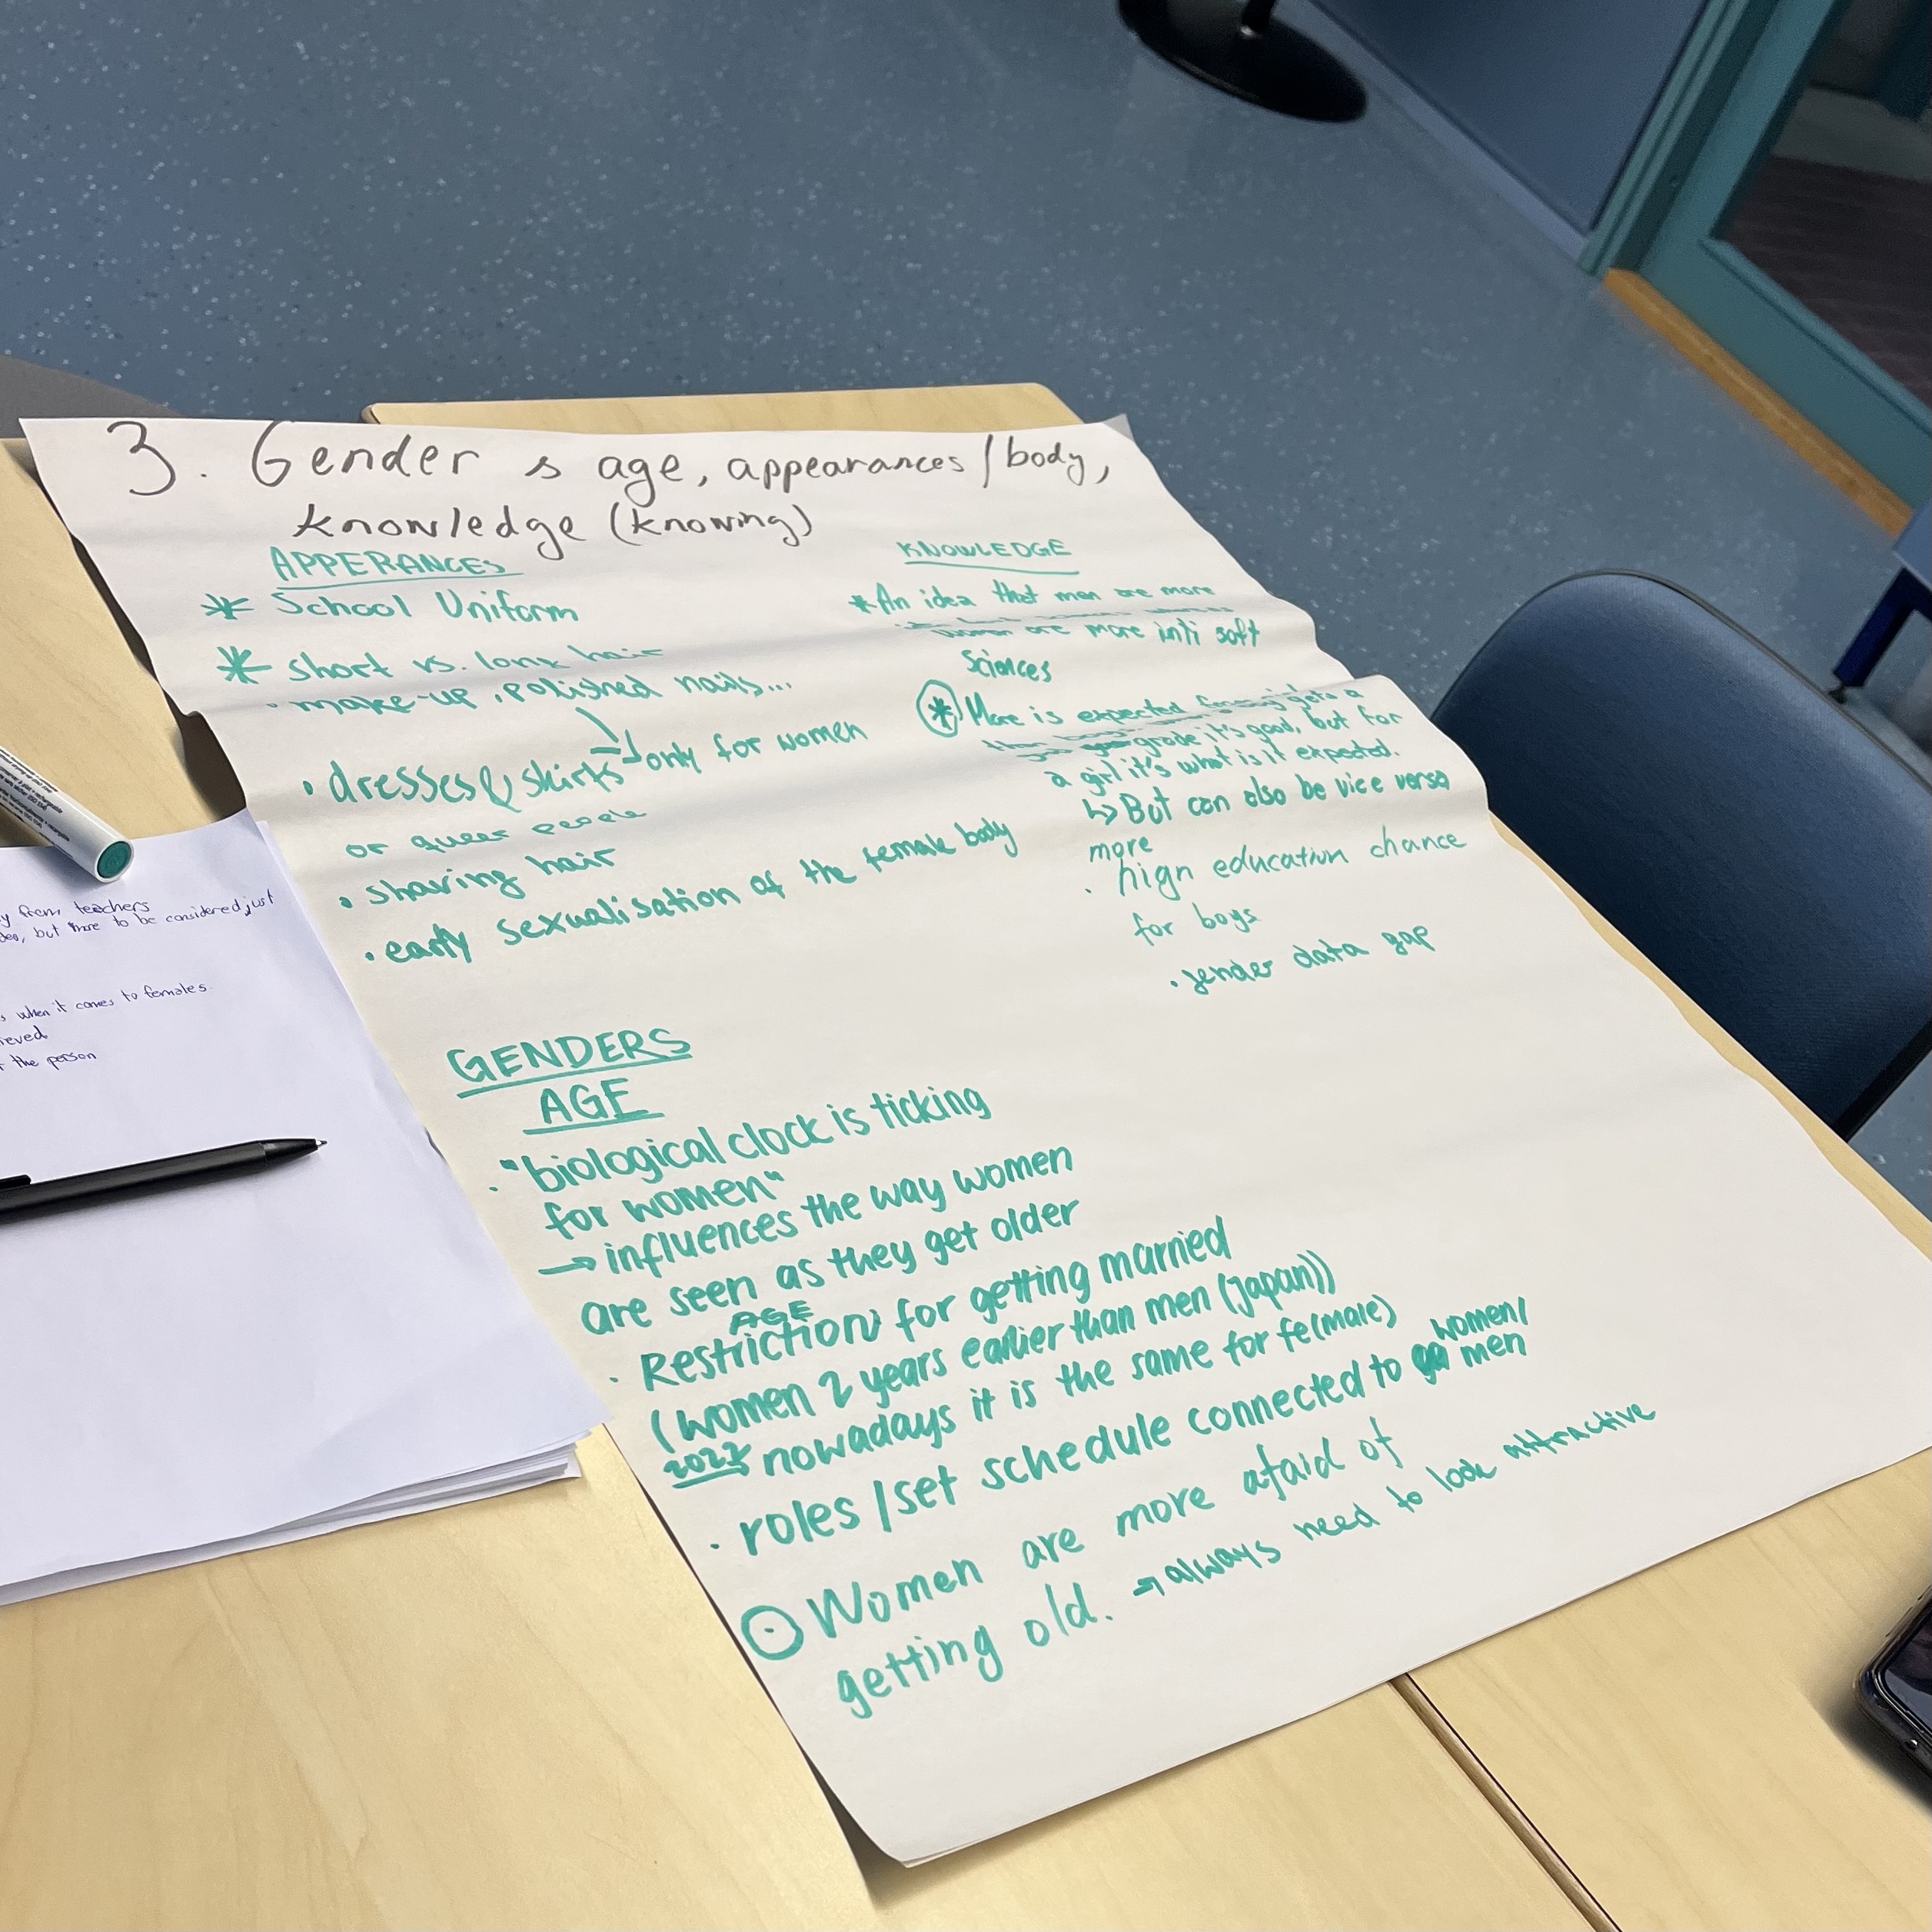 3. Gender & age, appearances/body,
knowledge (knowing)
APPERANCES
* School Uniform
* short vs. long hair
· make-up, polished nails...
· dresses & skirts → only for women
or queer people
· shaving hair
· early sexualisation of the female body
KNOWLEDGE
* An idea that men are more
women are more inti soft
Sciences
* More is expected gets a
grade, it's good, but for
a girl it's what is it expected.
↳ But can also be vice versa
more
· hign education chance
for boys
· gender data gap
GENDERS
AGE
· "biological clock is ticking
for women"
→ influences the way women
are seen as they get older
AGE
· Restriction for getting married
(women 2 years earlier than men (Japan))
nowadays it is the same for fe(male)
women/
· roles / set schedule connected to men
⊙ Women are more afaid of
getting old. → always need to look attractive
y from teachers
but to be considered, just
s when it comes to females
ieved
the person